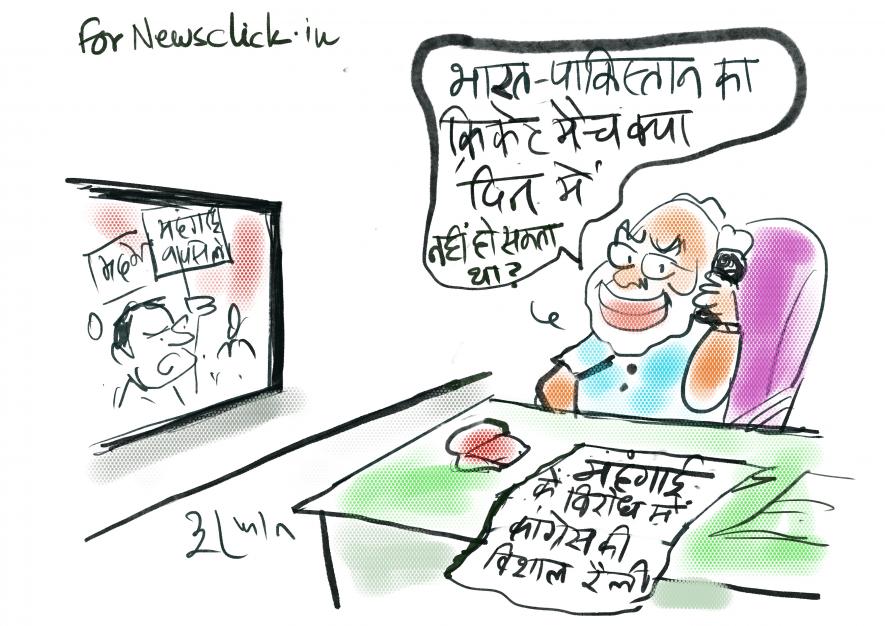 for Newsclick.in
भारत-पाकिस्तान का
क्रिकेट मैच क्या
दिन में
नहीं हो सकता
था?
महंगाई
वापस लो
महंगाई
के विरोध में
कांग्रेस की
विशाल रैली